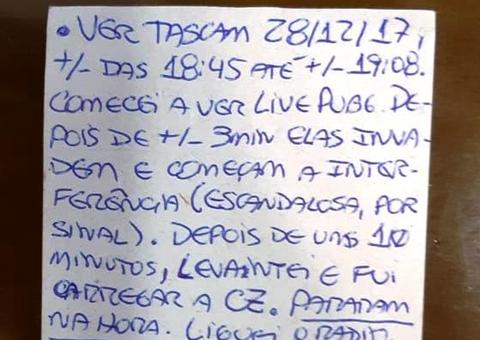 • VER TASCAM 28/12/17,
+/- DAS 18:45 ATÉ +/- 19:08.
COMECEI A VER LIVE PUBG. DE-
POIS DE +/- 3min ELAS INVA-
DEM E COMEÇAM A INTER-
FERÊNCIA (ESCANDALOSA, POR
SINAL). DEPOIS DE UNS 10
MINUTOS, LEVANTEI E FUI
CARREGAR A CZ. PARARAM
NA HORA. LIGUEI O RADIO